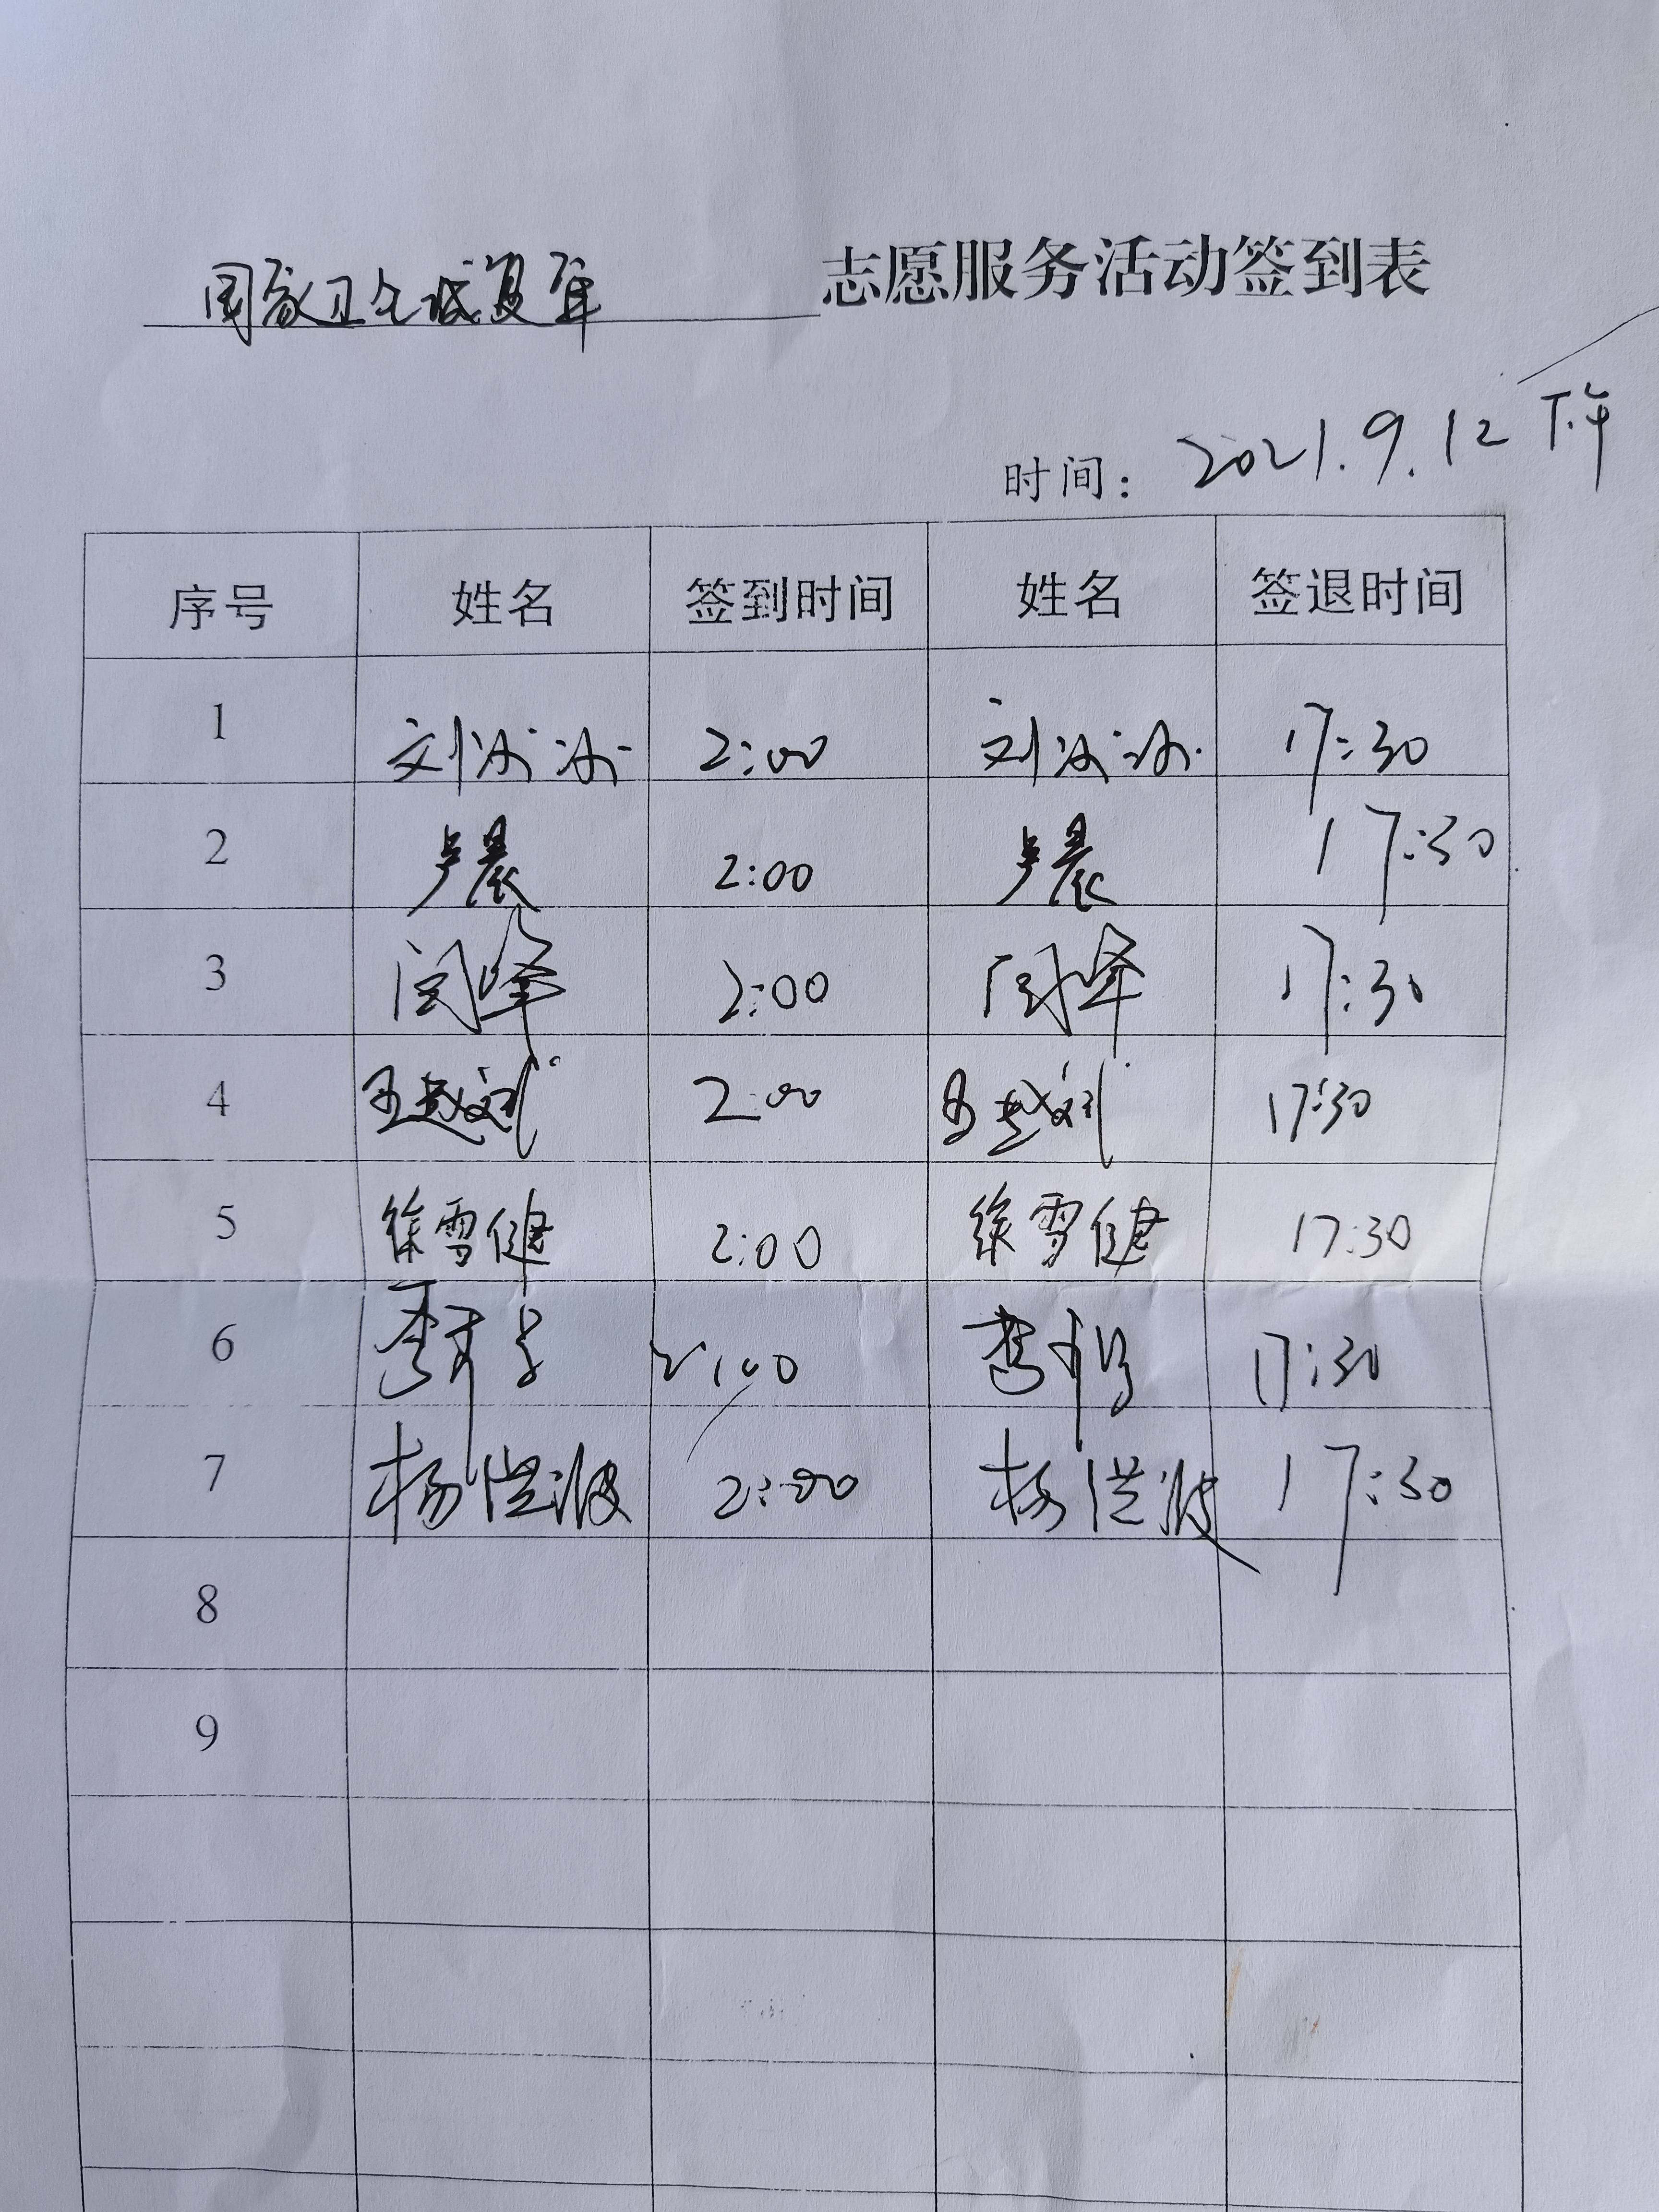 国家卫生城复审 志愿服务活动签到表
时间: 2021.9.12 下午
序号 姓名 签到时间 姓名 签退时间
1 刘冰冰 2:00 刘冰冰 17:30
2 卢晨 2:00 卢晨 17:30
3 闫峰 2:00 闫峰 17:30
4 2:00 17:30
5 徐雪健 2:00 徐雪健 17:30
6 2:00 17:30
7 杨洪波 2:00 杨洪波 17:30
8
9